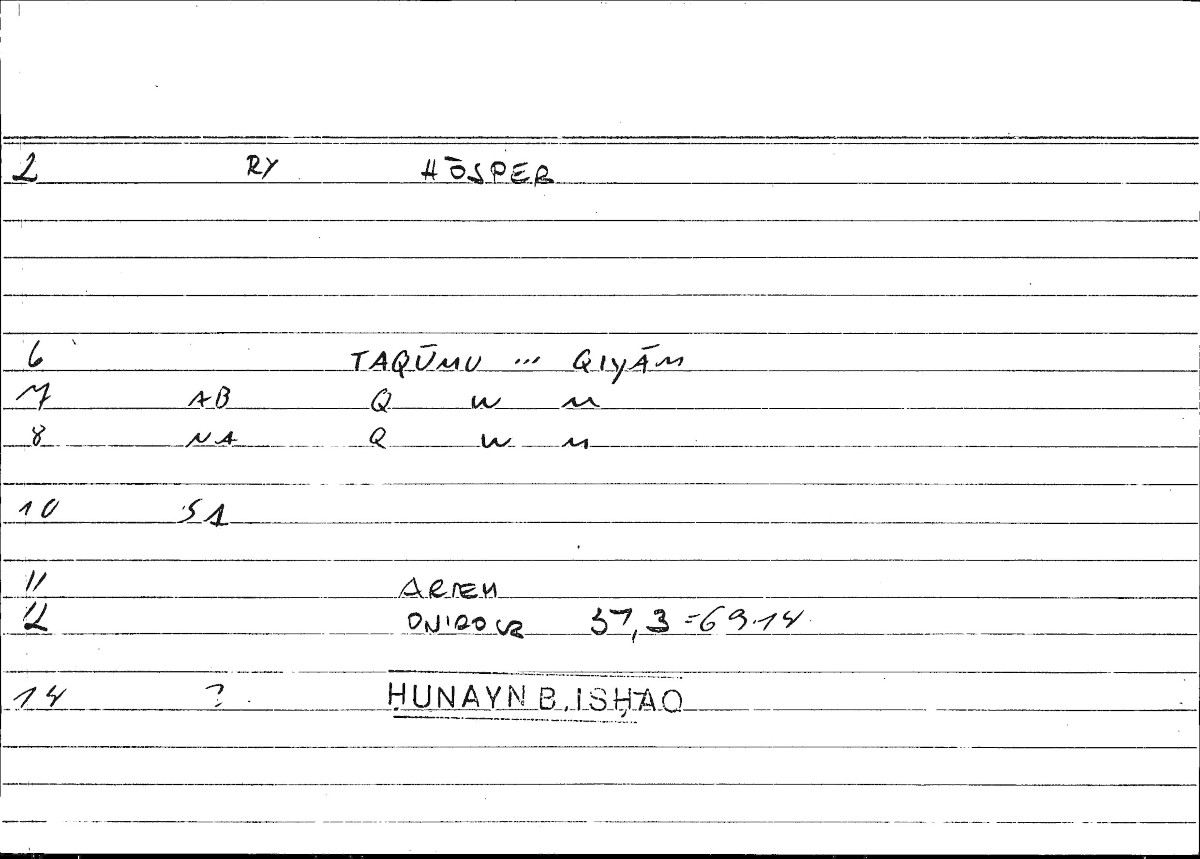 2 RY HŌSPER
6 TAQŪMU ... QIYĀM
7 AB Q W M
8 NA Q W M
10 SA
11 ARTEM
12 ONIROCR 37,3=69.14
14 ? ḤUNAYN B. ISḤAQ